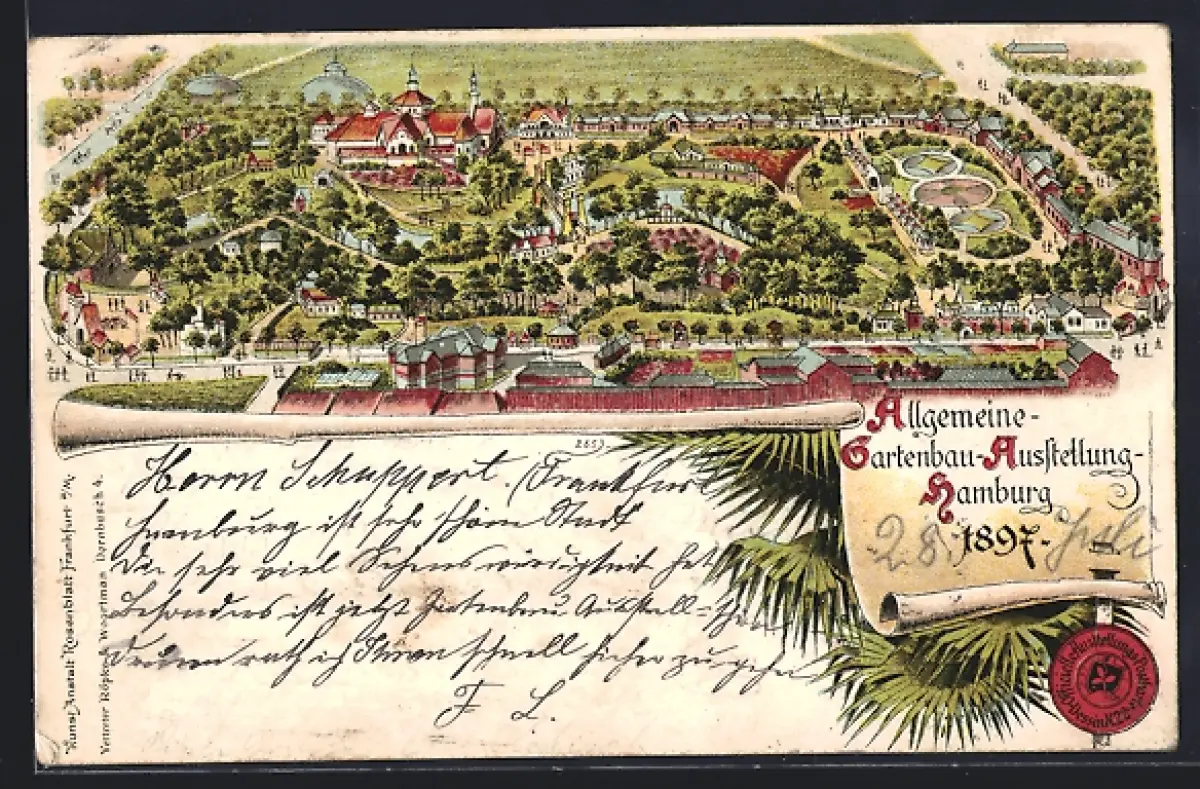 Allgemeine-
Gartenbau-Ausstellung-
Hamburg
1897.
28. Juli
2653
Herrn Schuppert. (Frankfurt
Hamburg ist sehr schöne Stadt
Die sehr viel Sehenswürdigkeit hat
Besonders ist jetzt Gartenbau Ausstell=
ich Ihnen schnell hieher zu gehen
F L.
Kunst Anstalt Rosenblatt Frankfurt a/M.
Vertreter Röpke-Woortman Dornbusch 4.
Officielle Ausstellungs Postkarte
Dessin N. 22